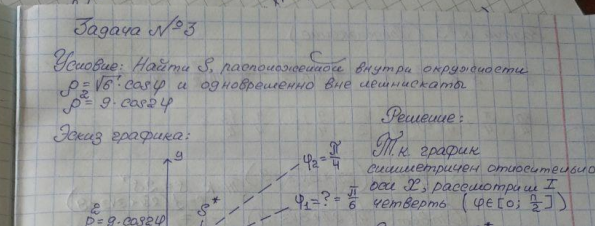 Задача №3
Условие: Найти S, расположенной внутри окружности
ρ = √6 · cosφ и одновременно вне лемнискаты
ρ² = 9 · cos2φ
Эскиз графика:
Решение:
Т.к график
симметричен относительно
оси X, рассмотрим I
четверть (φ∈[0; π/2])
y
φ₂ = π/4
S*
φ₁ = ? = π/6
ρ² = 9 · cos2φ